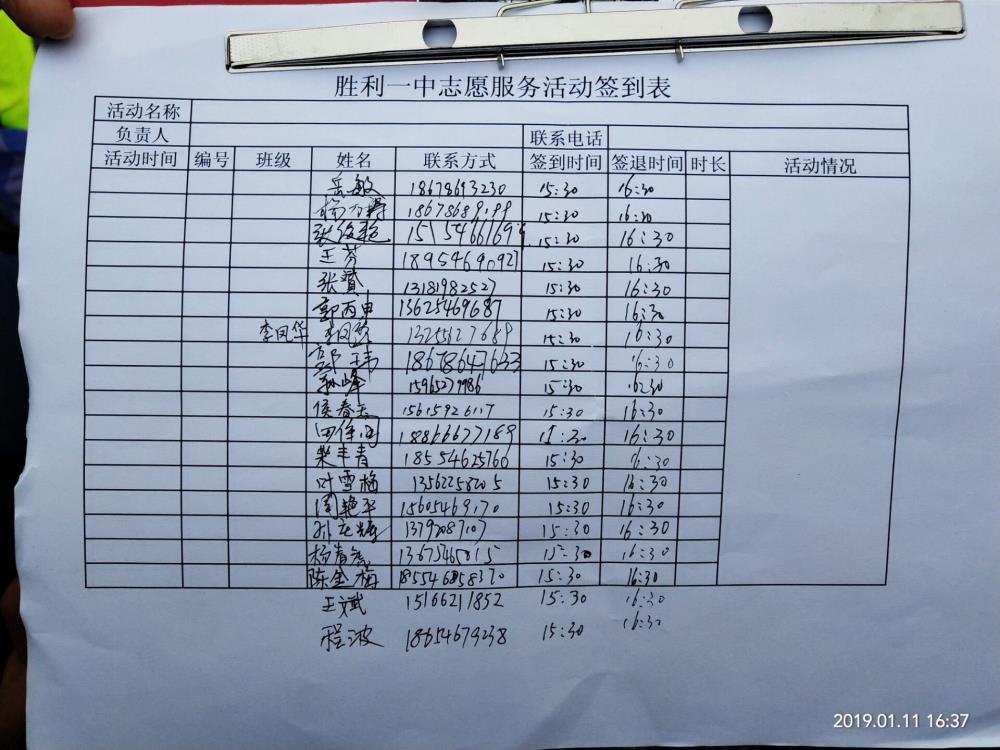 胜利一中志愿服务活动签到表
活动名称
负责人 联系电话
活动时间 编号 班级 姓名 联系方式 签到时间 签退时间 时长 活动情况
岳敏 18678693230 15:30 16:30
18678689199 15:30 16:30
15:30 16:30
王芳 18954690927 15:30 16:30
张赟 13181982527 15:30 16:30
郭丙申 13625469687 15:30 16:30
李凤华 13255127689 15:30 16:30
郭玮 18678647633 15:30 16:30
孙峰 15965277986 15:30 16:30
侯春玉 15615926117 15:30 16:30
18866677189 15:30 16:30
柴丰青 18554625760 15:30 16:30
叶雪梅 13562258205 15:30 16:30
周艳平 15605469170 15:30 16:30
15:30 16:30
15:30 16:30
陈金梅 15:30 16:30
王斌 15166211852 15:30 16:30
程波 18654679238 15:30 16:30
2019.01.11 16:37